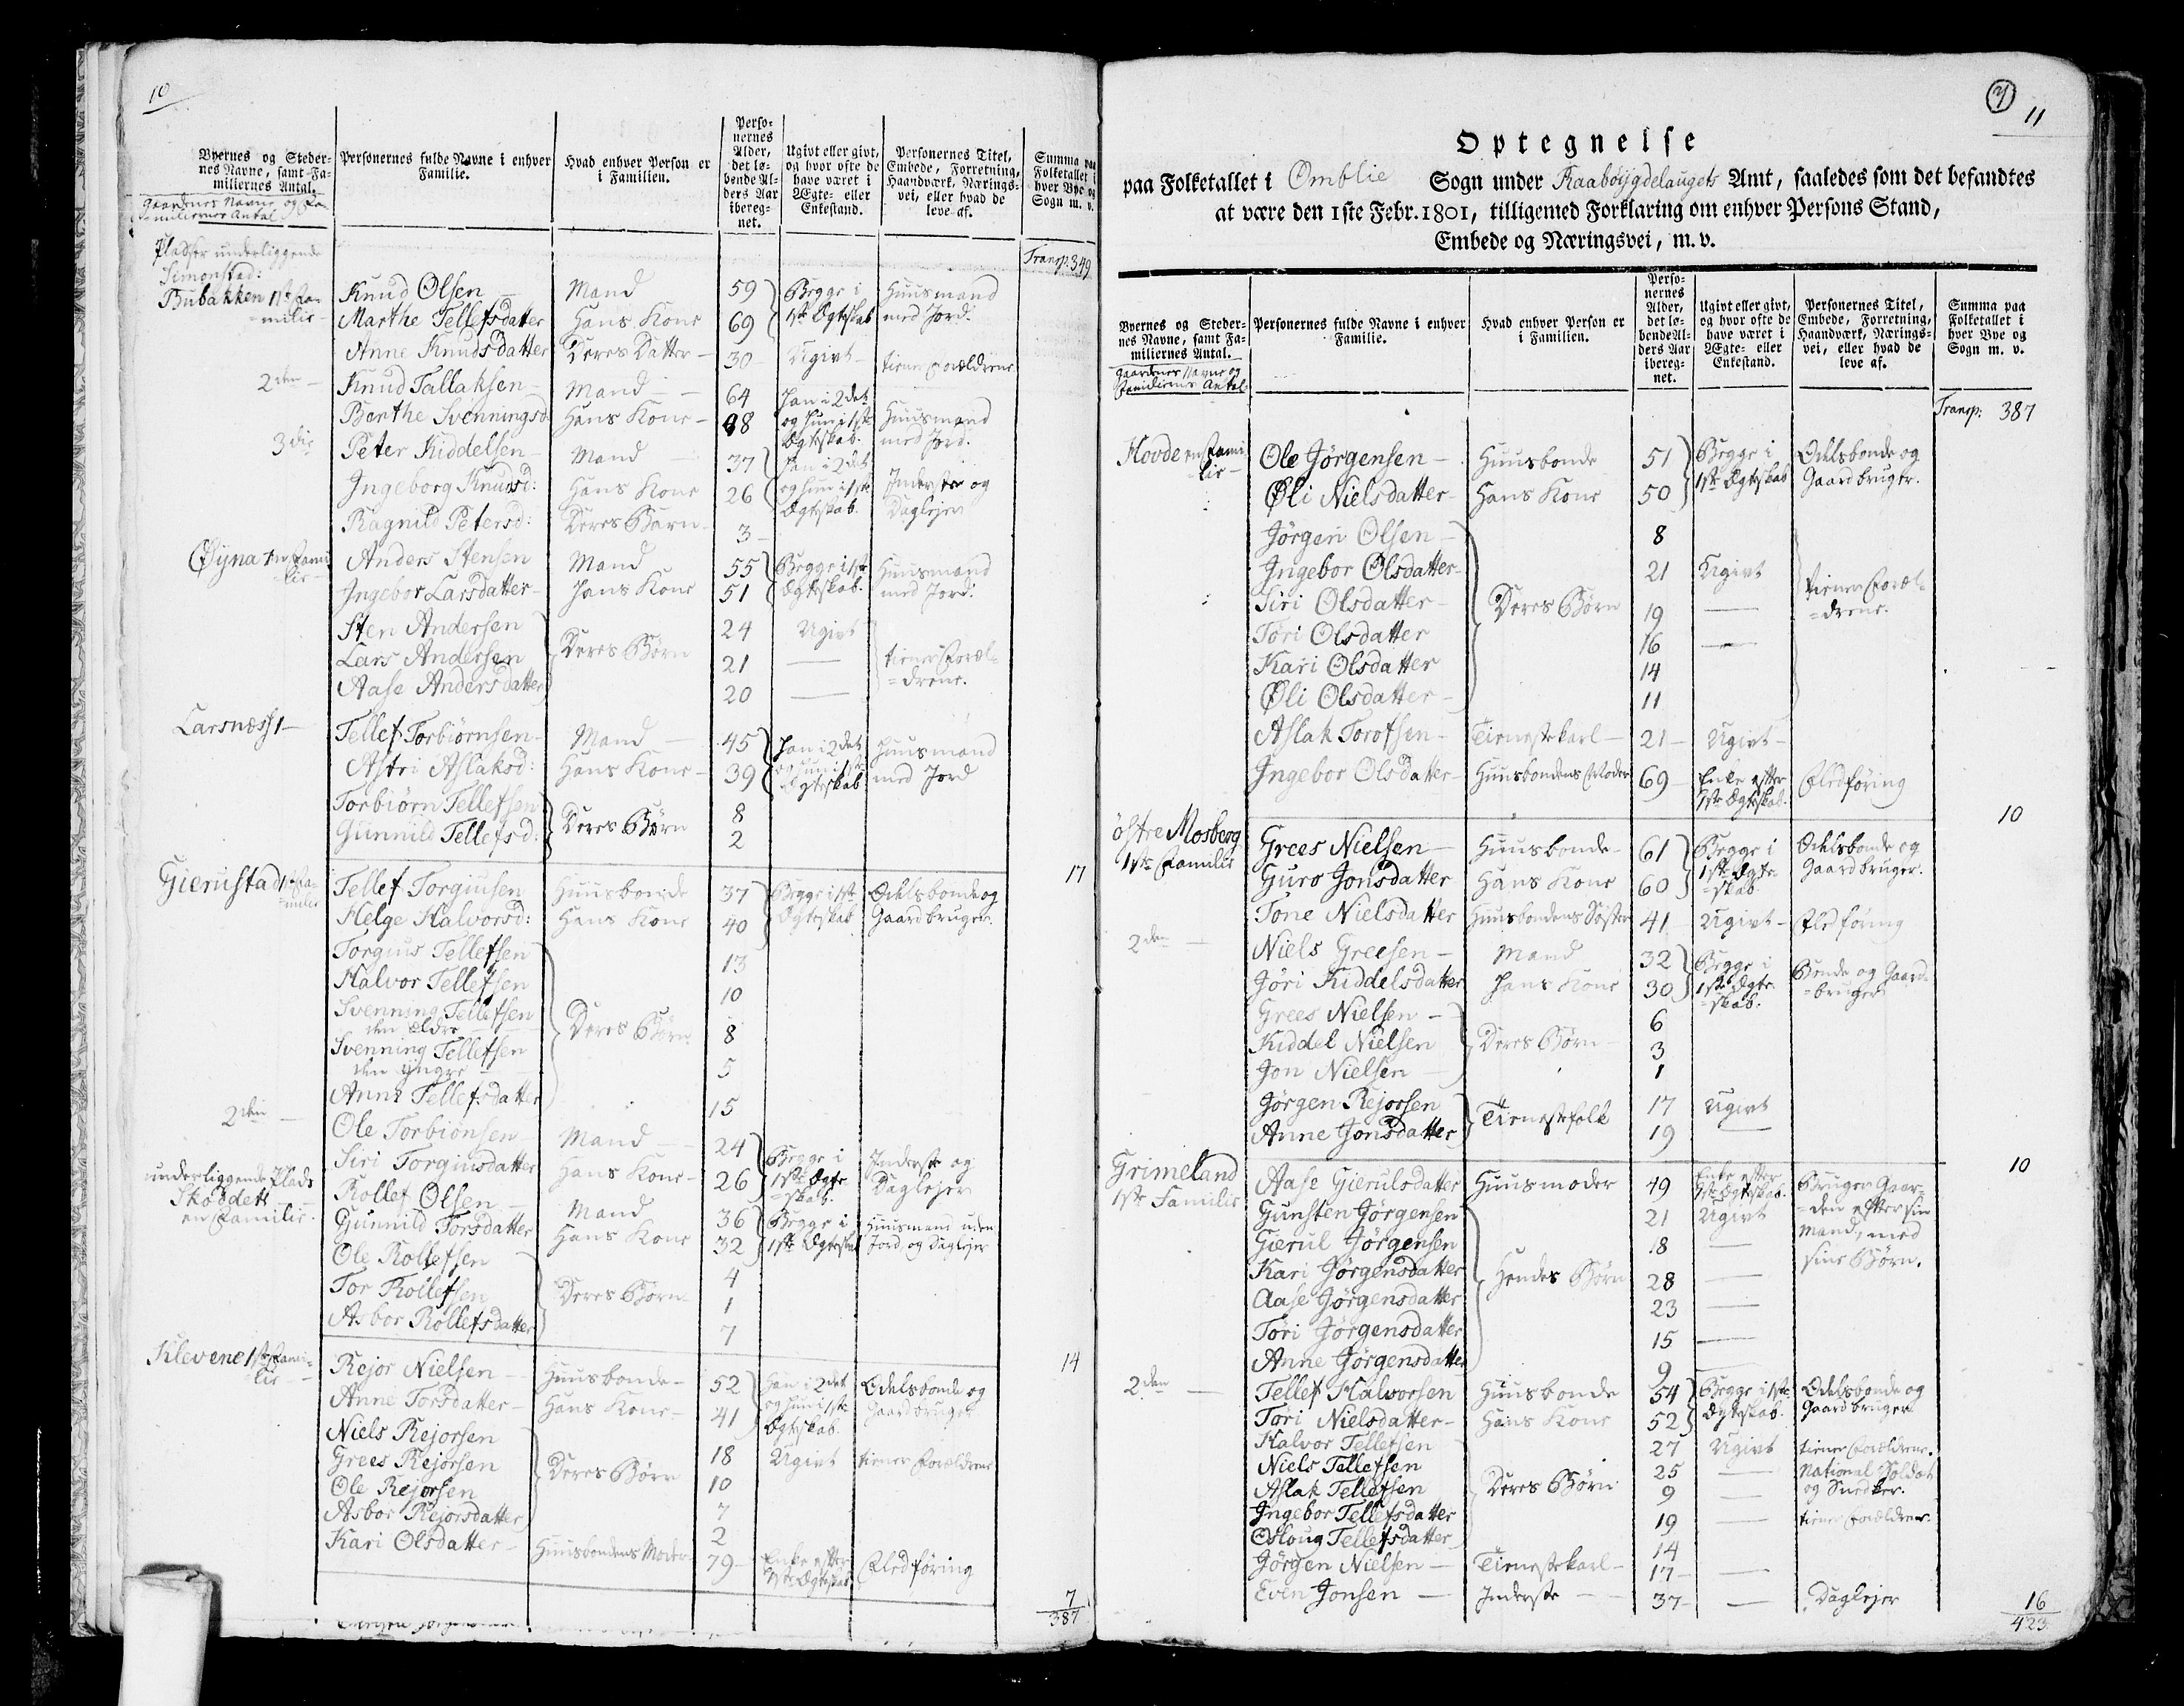 10
Byernes og Steder-
nes Navne, samt Fa-
miliernes Antal.
Gaardenes Navne og Fa-
miliernes Antal
Personernes fulde Navne i enhver
Familie.
Hvad enhver Person er
i Familien.
Perso-
nernes
Alder,
det lø-
bende Al-
ders Aar
ibereg-
net.
Ugivt eller givt,
og hvor ofte de
have været i
Ægte- eller
Enkestand.
Personernes Titel,
Embede, Forretning,
Haandværk, Nærings-
vei, eller hvad de
leve af.
Summa paa
Folketallet i
hver Bye og
Sogn m. v.
Transp: 349
Pladser underliggende
Simonstad:
Bubakken 1ste Fa- Knud Olsen – Mand 59 Begge i Huusmand
=milie – Marthe Tellefsdatter Hans Kone 69 1ste Ægteskab med Jord.
Anne Knudsdatter Deres Datter – 30 Ugivt – tiener Forældrene
2den – Knud Tallaksen – Mand – 64 Han i 2det
Berthe Svenningsd: Hans Kone – 48 og hun i 1ste Huusmand
Ægteskab. med Jord.
3die Peter Kiddelsen – Mand – 37 Han i 2det
Ingeborg Knudsd: Hans Kone 26 og hun i 1ste Inderste og
Ægteskab. Daglejer
Ragnild Petersd: Deres Barn – 3 –
Øyna en Fami Anders Stensen Mand 55 Begge i 1ste Huusmand
=lie – Ingebor Larsdatter – Hans Kone 51 Ægteskab. med Jord.
Sten Andersen 24 Ugivt
Lars Andersen Deres Børn 21 — tiener Foræl=
Aase Andersdatter 20 — =drene.
Larsnæss 1 – Tellef Torbiørnsen – Mand – 45 Han i 2det Huusmand
Astri Aslaksd: Hans Kone – 39 og hun i 1ste med Jord
Ægteskab
Torbiørn Tellefsen 8
Gunnild Tellefsd: Deres Børn 2
17
Gierustad 1ste Fa- Tellef Torgiusen Huusbonde 37 Begge i 1ste Odelsbonde og
=milie Helge Halvorsd: Hans Kone 40 Ægteskab Gaardbruger.
Torgius Tellefsen 13
Halvor Tellefsen 10
Svenning Tellefsen
den ældre – Deres Børn 8
Svenning Tellefsen
den yngre – 5
Anne Tellefsdatter 15
2den – Ole Torbiønsen – Mand – 24 Begge i Inderste og
Siri Torgiusdatter Hans Kone – 26 1ste Ægte= Daglejer
=skab.
underliggende Plads
Skoddett Rollef Olsen – Mand 36 Begge i Huusmand uden
en Familie. Gunnild Torsdatter Hans Kone 32 1ste Ægteskab Jord og Daglejer
Ole Rollefsen 4
Tor Rollefsen Deres Børn 1
Asbor Rollefsdatter 7
14
Klevene 1ste Fami- Rejor Nielsen – Huusbonde – 52 Han i 2det Odelsbonde og
=lie – Anne Torsdatter – Hans Kone – 41 og hun i 1ste Gaardbruger
Ægteskab.
Niels Rejorsen 18 Ugivt tiener Forældrene
Grees Rejorsen Deres Børn 10
Ole Rejorsen 7
Asbor Rejorsdatter 2
Kari Olsdatter – Huusbondens Moder 79 – Enke efter Fledføring
1ste Ægteskab
7
387
11
Optegnelse
paa Folketallet i Omblie Sogn under Raabøygdelaugets Amt, saaledes som det befandtes
at være den 1ste Febr. 1801, tilligemed Forklaring om enhver Persons Stand,
Embede og Næringsvei, m. v.
Byernes og Steder-
nes Navne, samt Fa-
miliernes Antal.
Gaardenes Navne og
Familiernes Antal.
Personernes fulde Navne i enhver
Familie.
Hvad enhver Person er
i Familien.
Perso-
nernes
Alder,
det lø-
bende Al-
ders Aar
ibereg-
net.
Ugivt eller givt,
og hvor ofte de
have været i
Ægte- eller
Enkestand.
Personernes Titel,
Embede, Forretning,
Haandværk, Nærings-
vei, eller hvad de
leve af.
Summa paa
Folketallet i
hver Bye og
Sogn m. v.
Transp: 387
Hovde en Fami Ole Jørgensen – Huusbonde 51 Begge i Odelsbonde og
=lie – Øli Nielsdatter – Hans Kone 50 1ste Ægteskab Gaardbruger.
Jørgen Olsen – 8
Ingebor Olsdatter – 21 Ugivt
Siri Olsdatter – Deres Børn 19 — tiener Foræl=
Tori Olsdatter 16 — =drene.
Kari Olsdatter 14
Øli Olsdatter – 11
Aslak Torofsen – Tienestekarl – 21 – Ugivt –
Ingebor Olsdatter – Huusbondens Moder 69 – Enke efter Fledføring
1ste Ægteskab.
10
østre Mosberg Grees Nielsen – Huusbonde – 61 Begge i Odelsbonde og
1ste Familie Guro Jonsdatter Hans Kone 60 1ste Ægte= Gaardbruger.
=skab
Tone Nielsdatter Huusbondens Søster 41 Ugivt – Fledføring
2den – Niels Greesen – Mand 32 Begge i Bonde og Gaard=
Jøri Kiddelsdatter Hans Kone 30 1ste Ægte= =bruger
=skab.
Grees Nielsen – 6
Kiddel Nielsen Deres Børn – 3
Jon Nielsen – 1
Jørgen Rejorsen Tienestefolk 17 Ugivt
Anne Jonsdatter 19 —
10
Grimeland Aase Gierulsdatter Huusmoder 49 Enke efter Bruger Gaar=
1ste Familie 1ste Ægteskab. =den efter sin
Gunsten Jørgensen 21 Ugivt Mand, med
Gierul Jørgensen 18 — sine Børn.
Kari Jørgensdatter Hendes Børn 28 —
Aase Jørgensdatter 23 —
Tori Jørgensdatter 15 —
Anne Jørgensdatter 9 —
2den – Tellef Halvorsen Huusbonde 54 Begge i 1ste Odelsbonde og
Tori Nielsdatter – Hans Kone 52 Ægteskab. Gaardbruger
Halvor Tellefsen 27 Ugivt tiener Forældrene.
Niels Tellefsen 25 — National Soldat
Aslak Tellefsen Deres Børn 9 — og Snedker.
Ingebor Tellefsdatter 19 — tiener Forældrene.
Osloug Tellefsdatter 14
Jørgen Nielsen – Tienestekarl – 17 – —
Even Jonsen – Inderste – 37 – — Daglejer
16
423